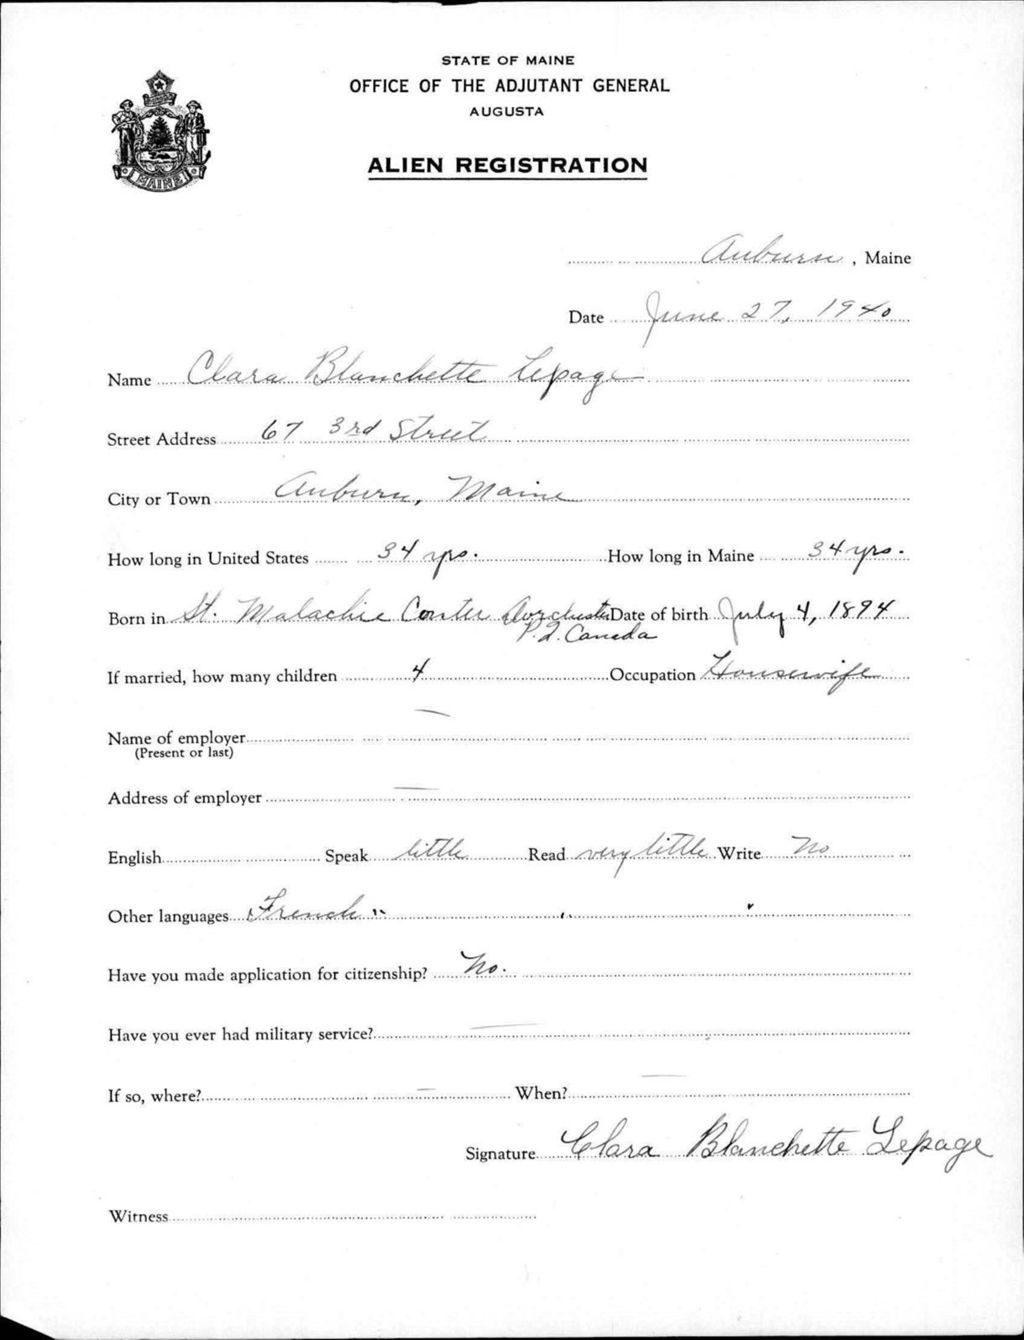 STATE OF MAINE
OFFICE OF THE ADJUTANT GENERAL
AUGUSTA
ALIEN REGISTRATION
MAINE
Auburn, Maine
Date June 27, 1940
Name Clara Blanchette Lepage
Street Address 67 3rd Street
City or Town Auburn, Maine
How long in United States 34 yrs. How long in Maine 34 yrs.
Born in St. Malachie Conter Dorchester Date of birth July 4, 1894
P.Q. Canada
If married, how many children 4 Occupation Housewife
Name of employer —
(Present or last)
Address of employer —
English Speak little Read very little Write No
Other languages French " " "
Have you made application for citizenship? No.
Have you ever had military service? —
If so, where? — When? —
Signature Clara Blanchette Lepage
Witness